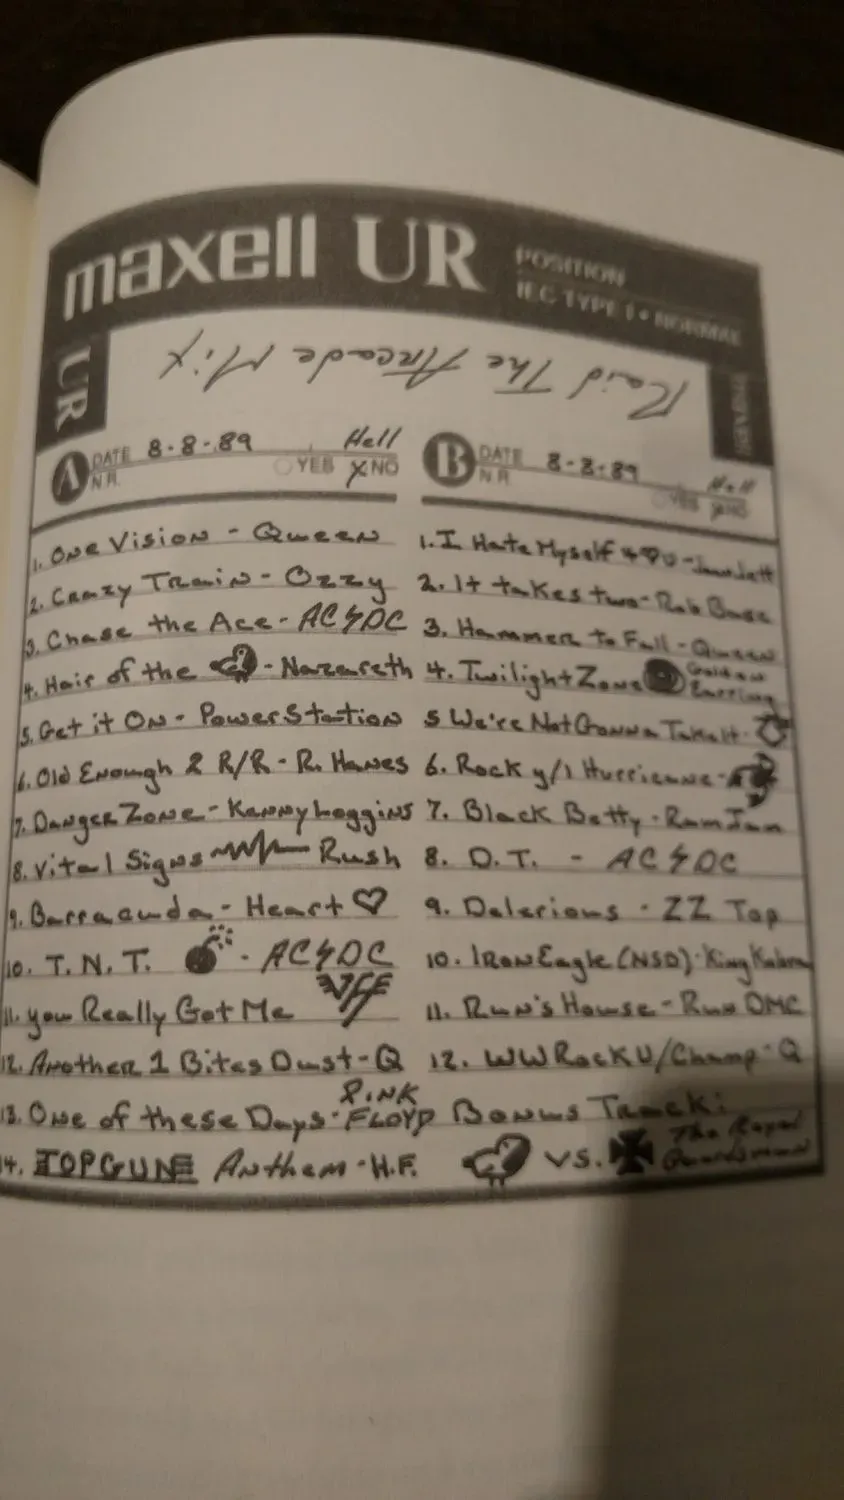 maxell UR POSITION
IEC TYPE I • NORMAL
UR
Raid The Arcade Mix
A DATE 8-8-89 Hell
N.R. YES XNO
B DATE 8-8-89 Hell
N.R. YES XNO
1. One Vision - Queen
2. Crazy Train - Ozzy
3. Chase the Ace - AC⚡DC
4. Hair of the - Nazareth
5. Get it On - PowerStation
6. Old Enough 2 R/R - R. Hanes
7. Danger Zone - Kenny Loggins
8. Vital Signs Rush
9. Barracuda - Heart ♡
10. T.N.T. - AC⚡DC
11. you Really Got Me
12. Another 1 Bites Dust - Q
13. One of these Days - PINK FLOYD
14. TOPGUN Anthem - H.F.
1. I Hate Myself 4 ♡ U - Joan Jett
2. It takes two - Rob Base
3. Hammer to Fall - Queen
4. Twilight Zone Golden Earring
5 We're Not Gonna Take It -
6. Rock y/l Hurricane -
7. Black Betty - Ram Jam
8. D.T. - AC⚡DC
9. Delerious - ZZ Top
10. Iron Eagle (NSD) - King Kobra
11. Run's House - Run DMC
12. WWRockU/Champ - Q
Bonus Track:
vs. The Royal Guardsmen